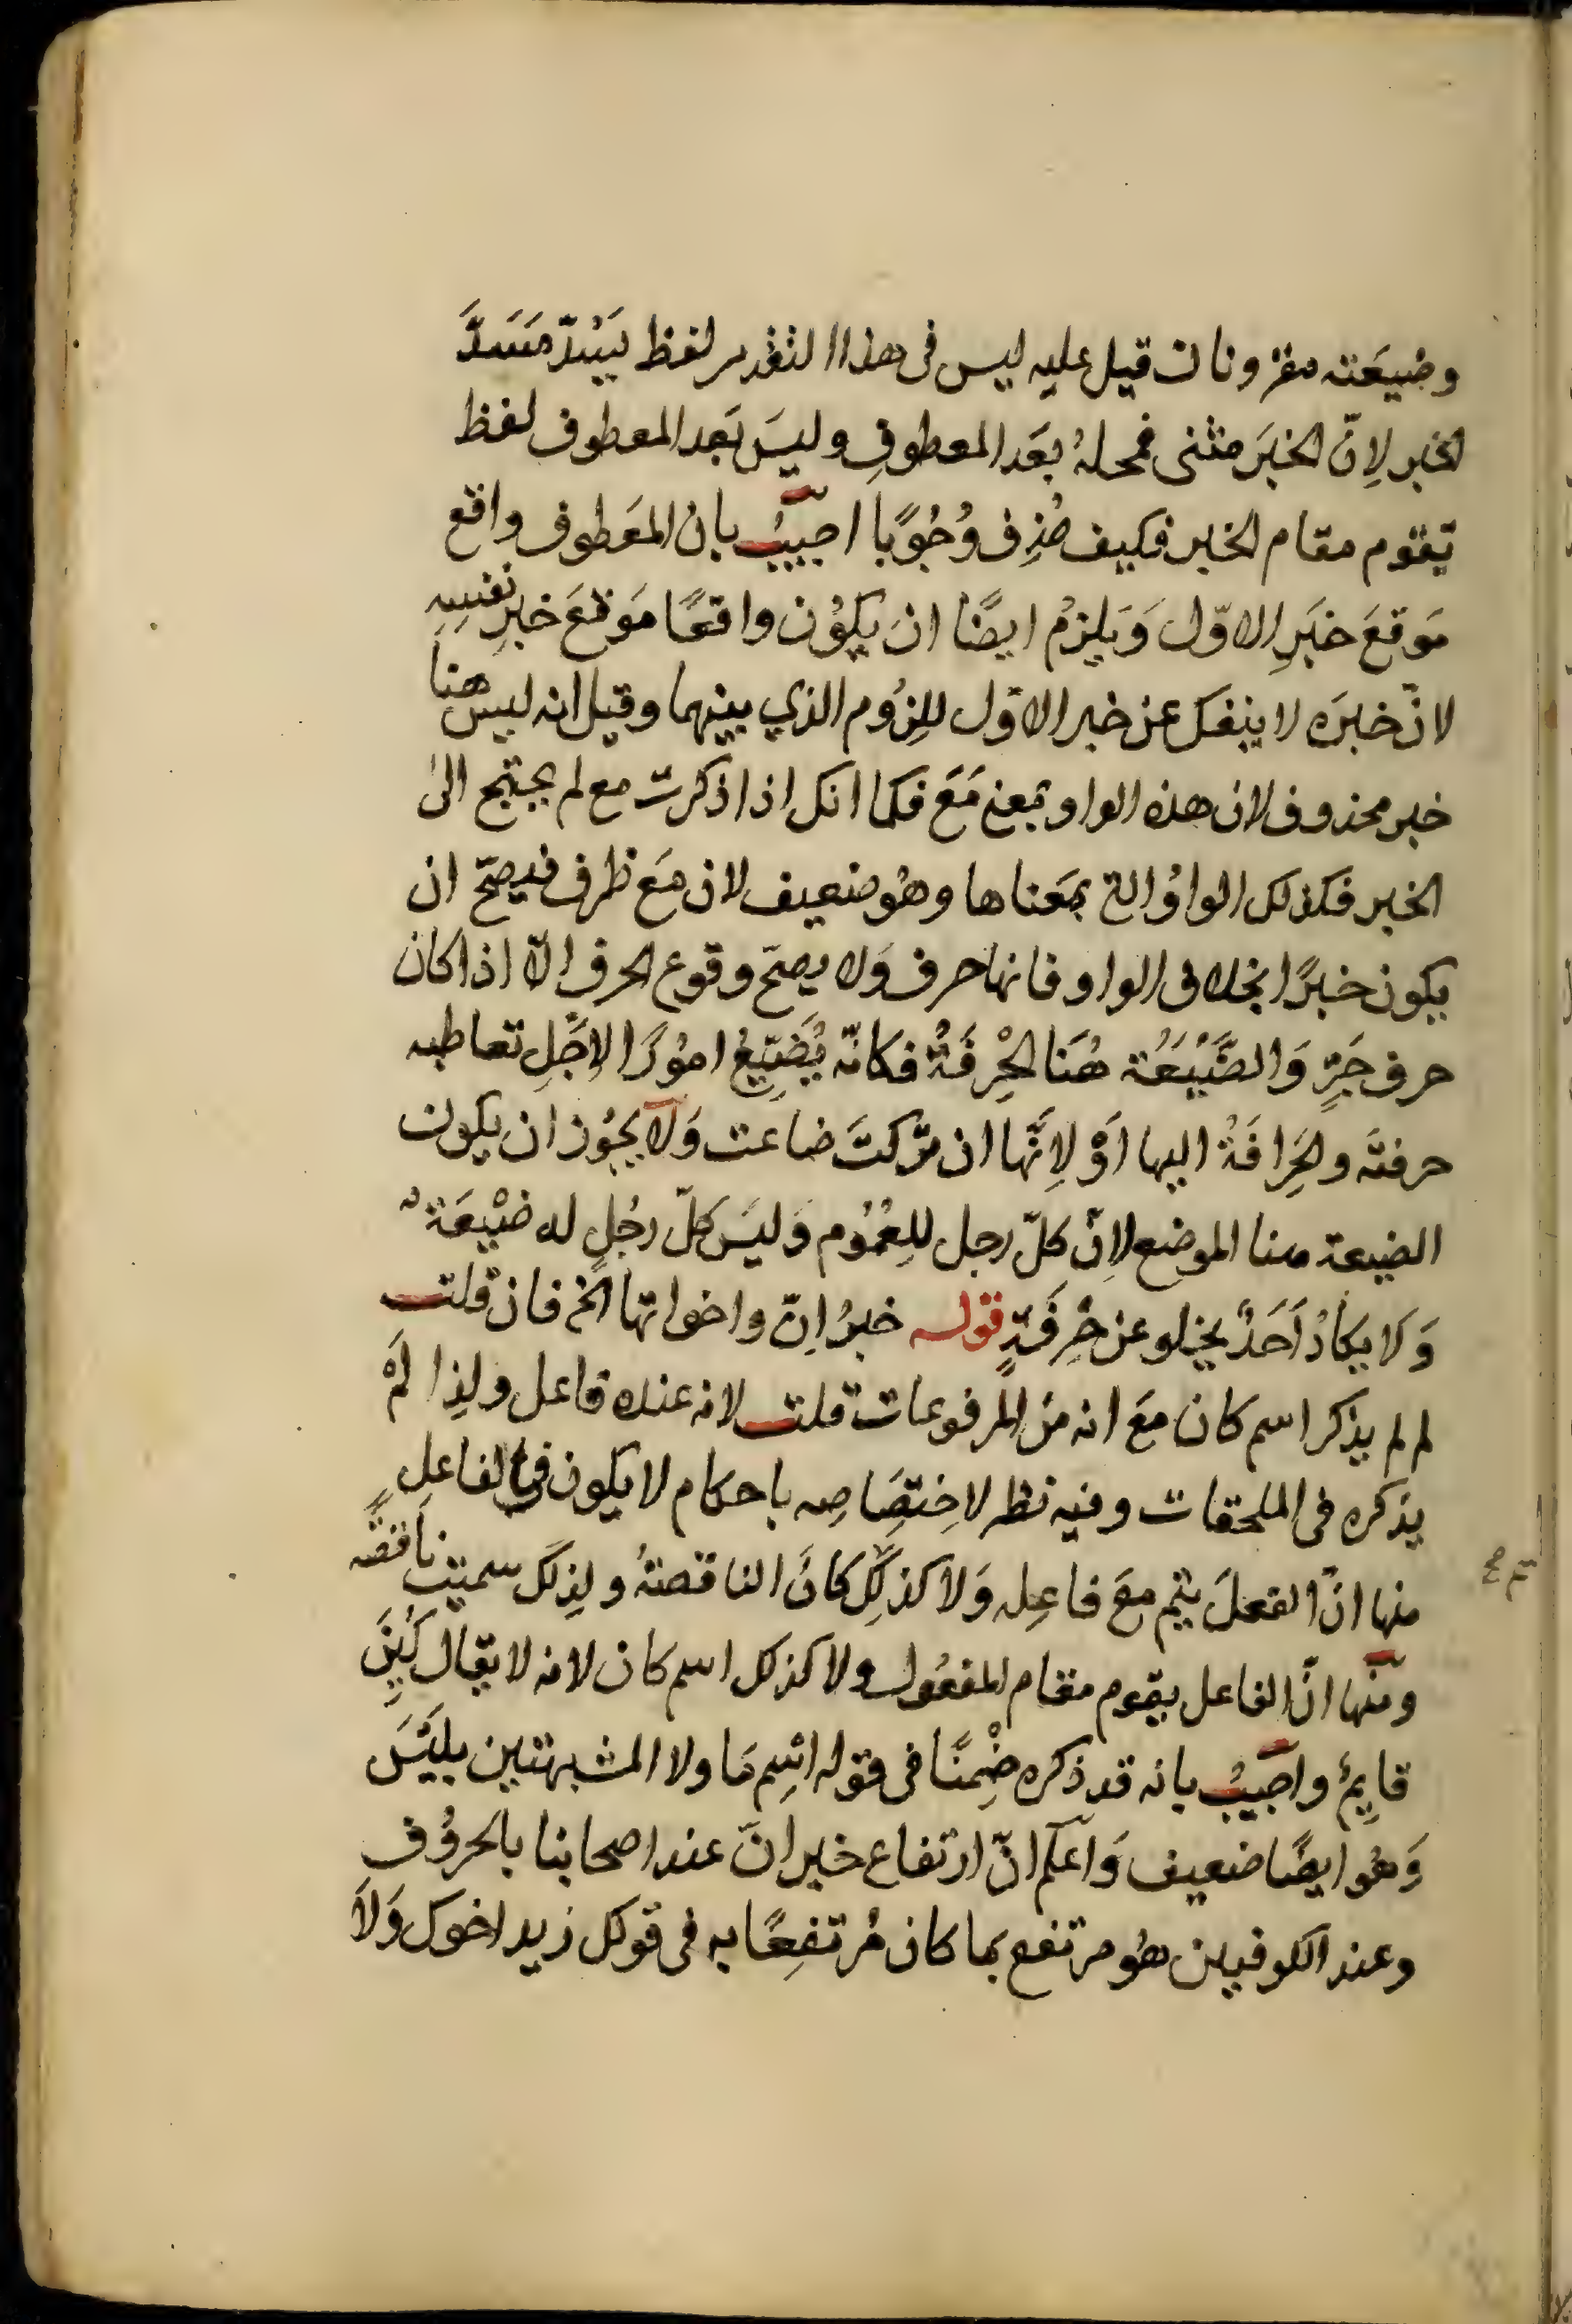 وضَيعَته مقرونان قيل عليه ليس فى هذا التقدير لفظ يَسُدّ مَسَدَّ
الخبر لِانّ الخبَر مثنى فمحلهُ بعَد المعطوفِ وليسَ بَعد المعطوف لفظ
يقوم مقام الخبر فكيف حُذِف وُجُوبًا اجيبُ بان المعَطوف واقع
مَوقعَ خبَرِ الاوّل وَيلزمُ ايضًا ان يكوُن واقعًا مَوقعَ خبرِ نفسِهِ
لانّ خبرَه لا ينفكل عن خبر الاوّل للزُوم الذي بينهما وقيل انه ليس هنا
خبر محذوف لان هذه الواو بمعنى مَعَ فكما انك اذا ذكرت مع لم يحتج الىٰ
الخبر فكذلك الواوُ التى بمَعناها وهُو ضعيف لان مَع ظرف فيصحّ ان
يكون خبرًا بخلاف الواو فانها حرف وَلا يصحّ وقوع الحرف الّا اذا كان
حرف جَرٍّ وَالضَّيْعَةُ هُنَا الحِرْفَةُ فكانّه يُضَيِّعُ امُورًا لِاجَلِ تعاطيه
حرفتَه والحِرَافَةُ اليها اَوْ لِانَّها ان تركتَ ضاعت وَلا يجُوز ان يكون
الضيعة هنا الموضع لِانّ كلّ رجل للِعُمُوم وَليسَ كلّ رجُلٍ له ضَيْعَةٌ
وَلا يكَادُ اَحَدٌ يخلو عن حِرفَةٍ قوله خبرُ اِنّ واخواتها الخ فان قلت
لم لم يذكر اسم كان مَعَ انه من المرفوعات قلت لانه عنده فاعل ولِذا لَمْ
يذكره فى الملحقات وفيه نظر لاِختصَاصِه باحكام لا يكون فى الفاعلِ
منها انّ الفعلَ يتم معَ فاعِله وَلا كذلِكَ كانَ الناقصةُ ولِذلكَ سميت ناقصًه
ومنها انّ الفاعل يقوم مقام المفعُول ولا كذلك اسم كان لانه لا يقال كُيِنَ
قايمٌ واجَيبُ بانه قد ذكره ضِمْنًا فى قوله اسِم مَا ولا المشبهتين بليَسَ
وَهُو ايضًا ضعيف وَاعلم انّ ارتفاع خبر انّ عند اصحابنا بالحرُوف
وعند الكوفيين هُو مرتفع بما كان مُرتفِعًا به فى قولك زيد اخوك وَلَا